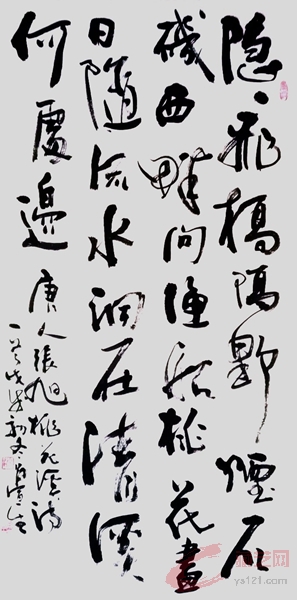 隐〻飛橋隔野煙石
磯西畔问漁船桃花盡
日隨流水洞在清溪
何處邊
唐人張旭桃花溪詩
戊戌初冬
ys121.com